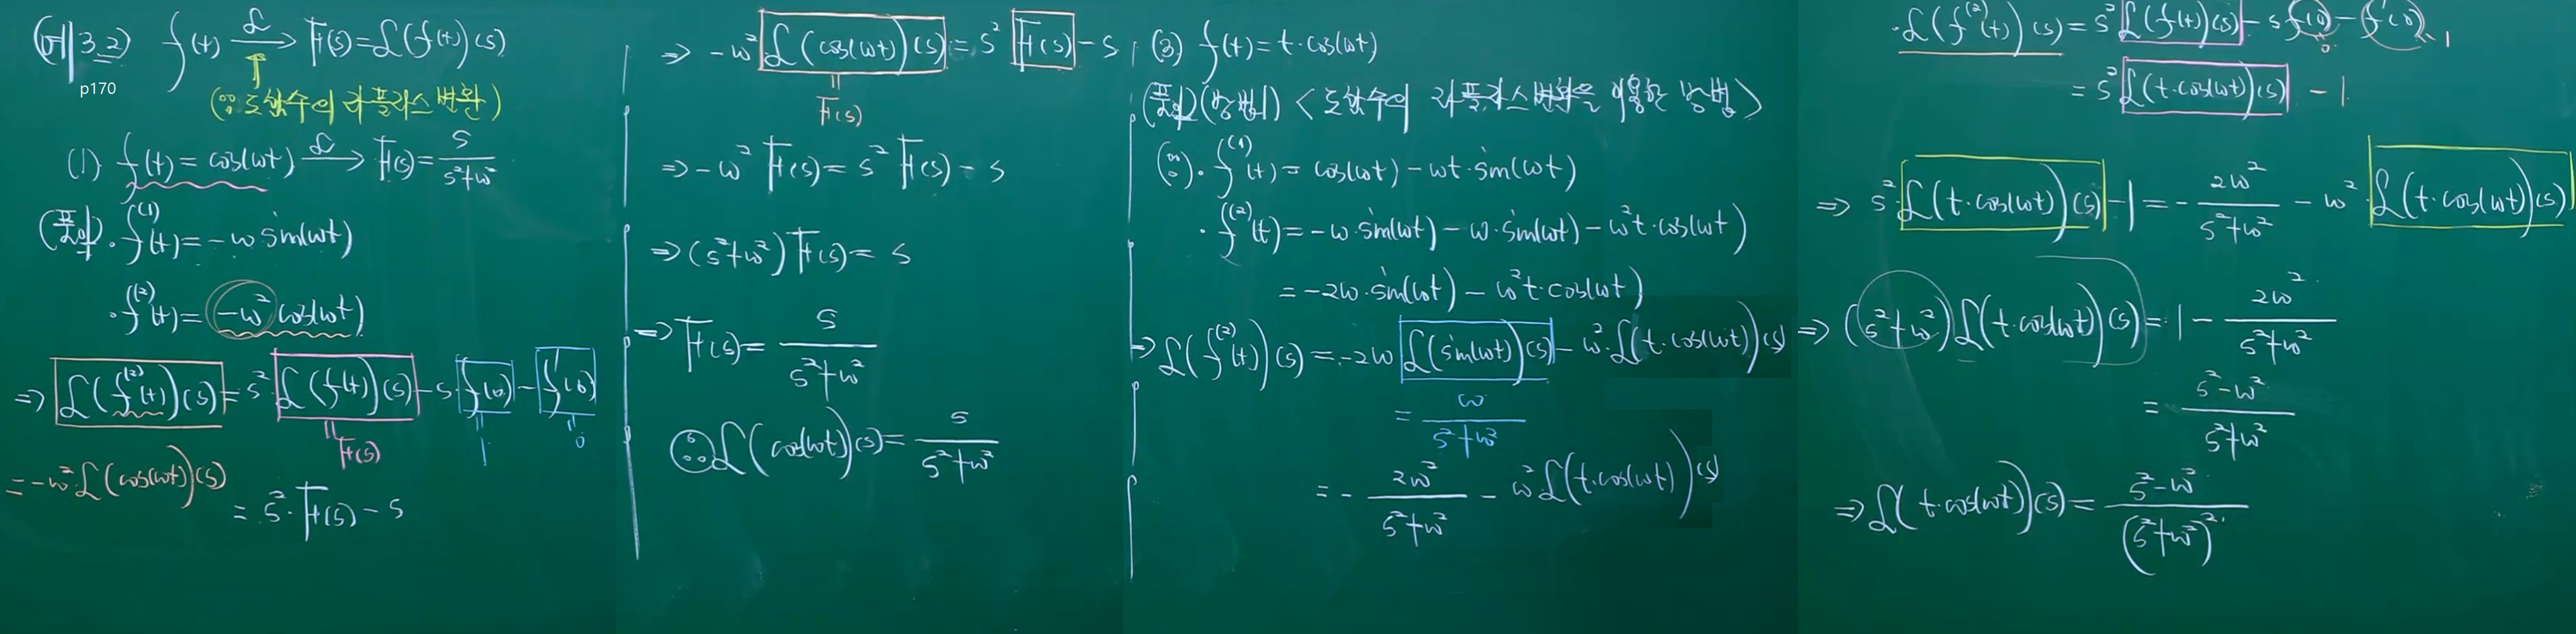 (예 3.2) f(t) ℒ→ F(s)=ℒ(f(t))(s)
p170
(∵ 도함수의 라플라스 변환)
(1) f(t) = cos(ωt) ℒ→ F(s)= s/(s²+ω²)
(풀이) · f⁽¹⁾(t) = -ω sin(ωt)
· f⁽²⁾(t) = -ω² cos(ωt)
⇒ ℒ(f⁽²⁾(t))(s) = s² ℒ(f(t))(s) - s·f(0) - f'(0)
F(s) 1 0
= -ω² ℒ(cos(ωt))(s)
= s²·F(s) - s
⇒ -ω² ℒ(cos(ωt))(s) = s² F(s) - s
F(s)
⇒ -ω² F(s) = s² F(s) - s
⇒ (s²+ω²) F(s) = s
⇒ F(s) = s/(s²+ω²)
∴ ℒ(cos(ωt))(s) = s/(s²+ω²)
(3) f(t) = t·cos(ωt)
(풀이) (방법1) < 도함수의 라플라스변환을 이용한 방법 >
(∵) · f⁽¹⁾(t) = cos(ωt) - ωt·sin(ωt)
· f⁽²⁾(t) = -ω·sin(ωt) - ω·sin(ωt) - ω²t·cos(ωt)
= -2ω·sin(ωt) - ω²t·cos(ωt)
⇒ ℒ(f⁽²⁾(t))(s) = -2ω ℒ(sin(ωt))(s) - ω²·ℒ(t·cos(ωt))(s)
= ω/(s²+ω²)
= - 2ω²/(s²+ω²) - ω² ℒ(t·cos(ωt))(s)
· ℒ(f⁽²⁾(t))(s) = s² ℒ(f(t))(s) - s f(0) - f'(0)
0 1
= s² ℒ(t·cos(ωt))(s) - 1
⇒ s² ℒ(t·cos(ωt))(s) - 1 = - 2ω²/(s²+ω²) - ω² ℒ(t·cos(ωt))(s)
⇒ (s²+ω²) ℒ(t·cos(ωt))(s) = 1 - 2ω²/(s²+ω²)
= (s²-ω²)/(s²+ω²)
⇒ ℒ(t·cos(ωt))(s) = (s²-ω²)/(s²+ω²)²